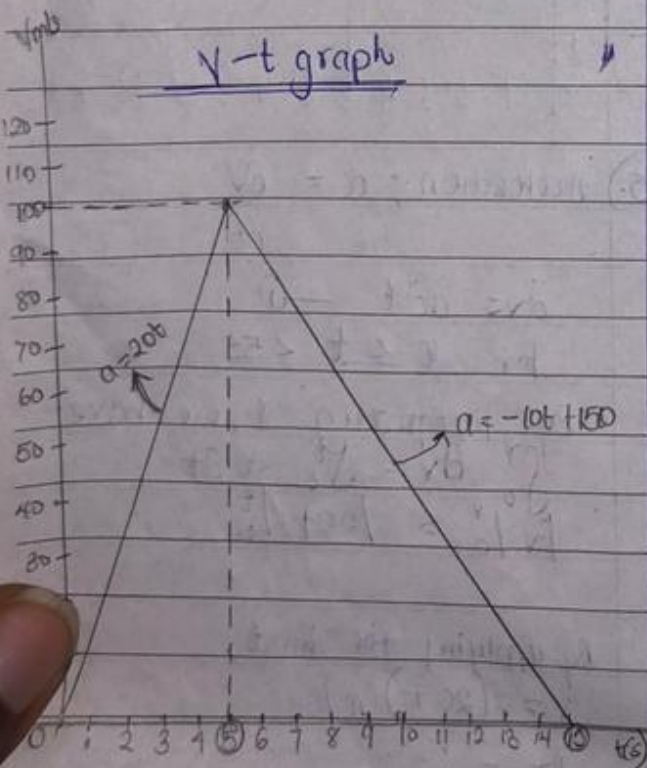 V m/s
V-t graph
120
110
100
90
80
70
60
50
40
30
a=20t
a=-10t+150
0 1 2 3 4 5 6 7 8 9 10 11 12 13 14 15 t(s)